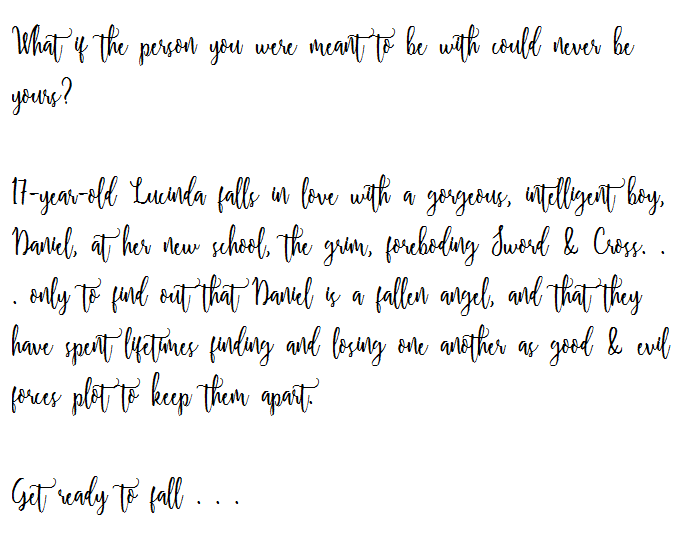 What if the person you were meant to be with could never be
yours?
17-year-old Lucinda falls in love with a gorgeous, intelligent boy,
Daniel, at her new school, the grim, foreboding Sword & Cross. .
. only to find out that Daniel is a fallen angel, and that they
have spent lifetimes finding and losing one another as good & evil
forces plot to keep them apart.
Get ready to fall . . .